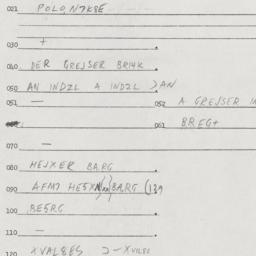 021 POLO,N7K8E
030 +
040 DER GREJSER BRI4K
050 AN INDZL A INDZL > AN
051 — 052 A GREJSER I
061 BREG+
070 —
080 HEJXER BARG
090 AFM7 HE5X BARG (
100 BE5RG
110 —
120 XVAL8ES